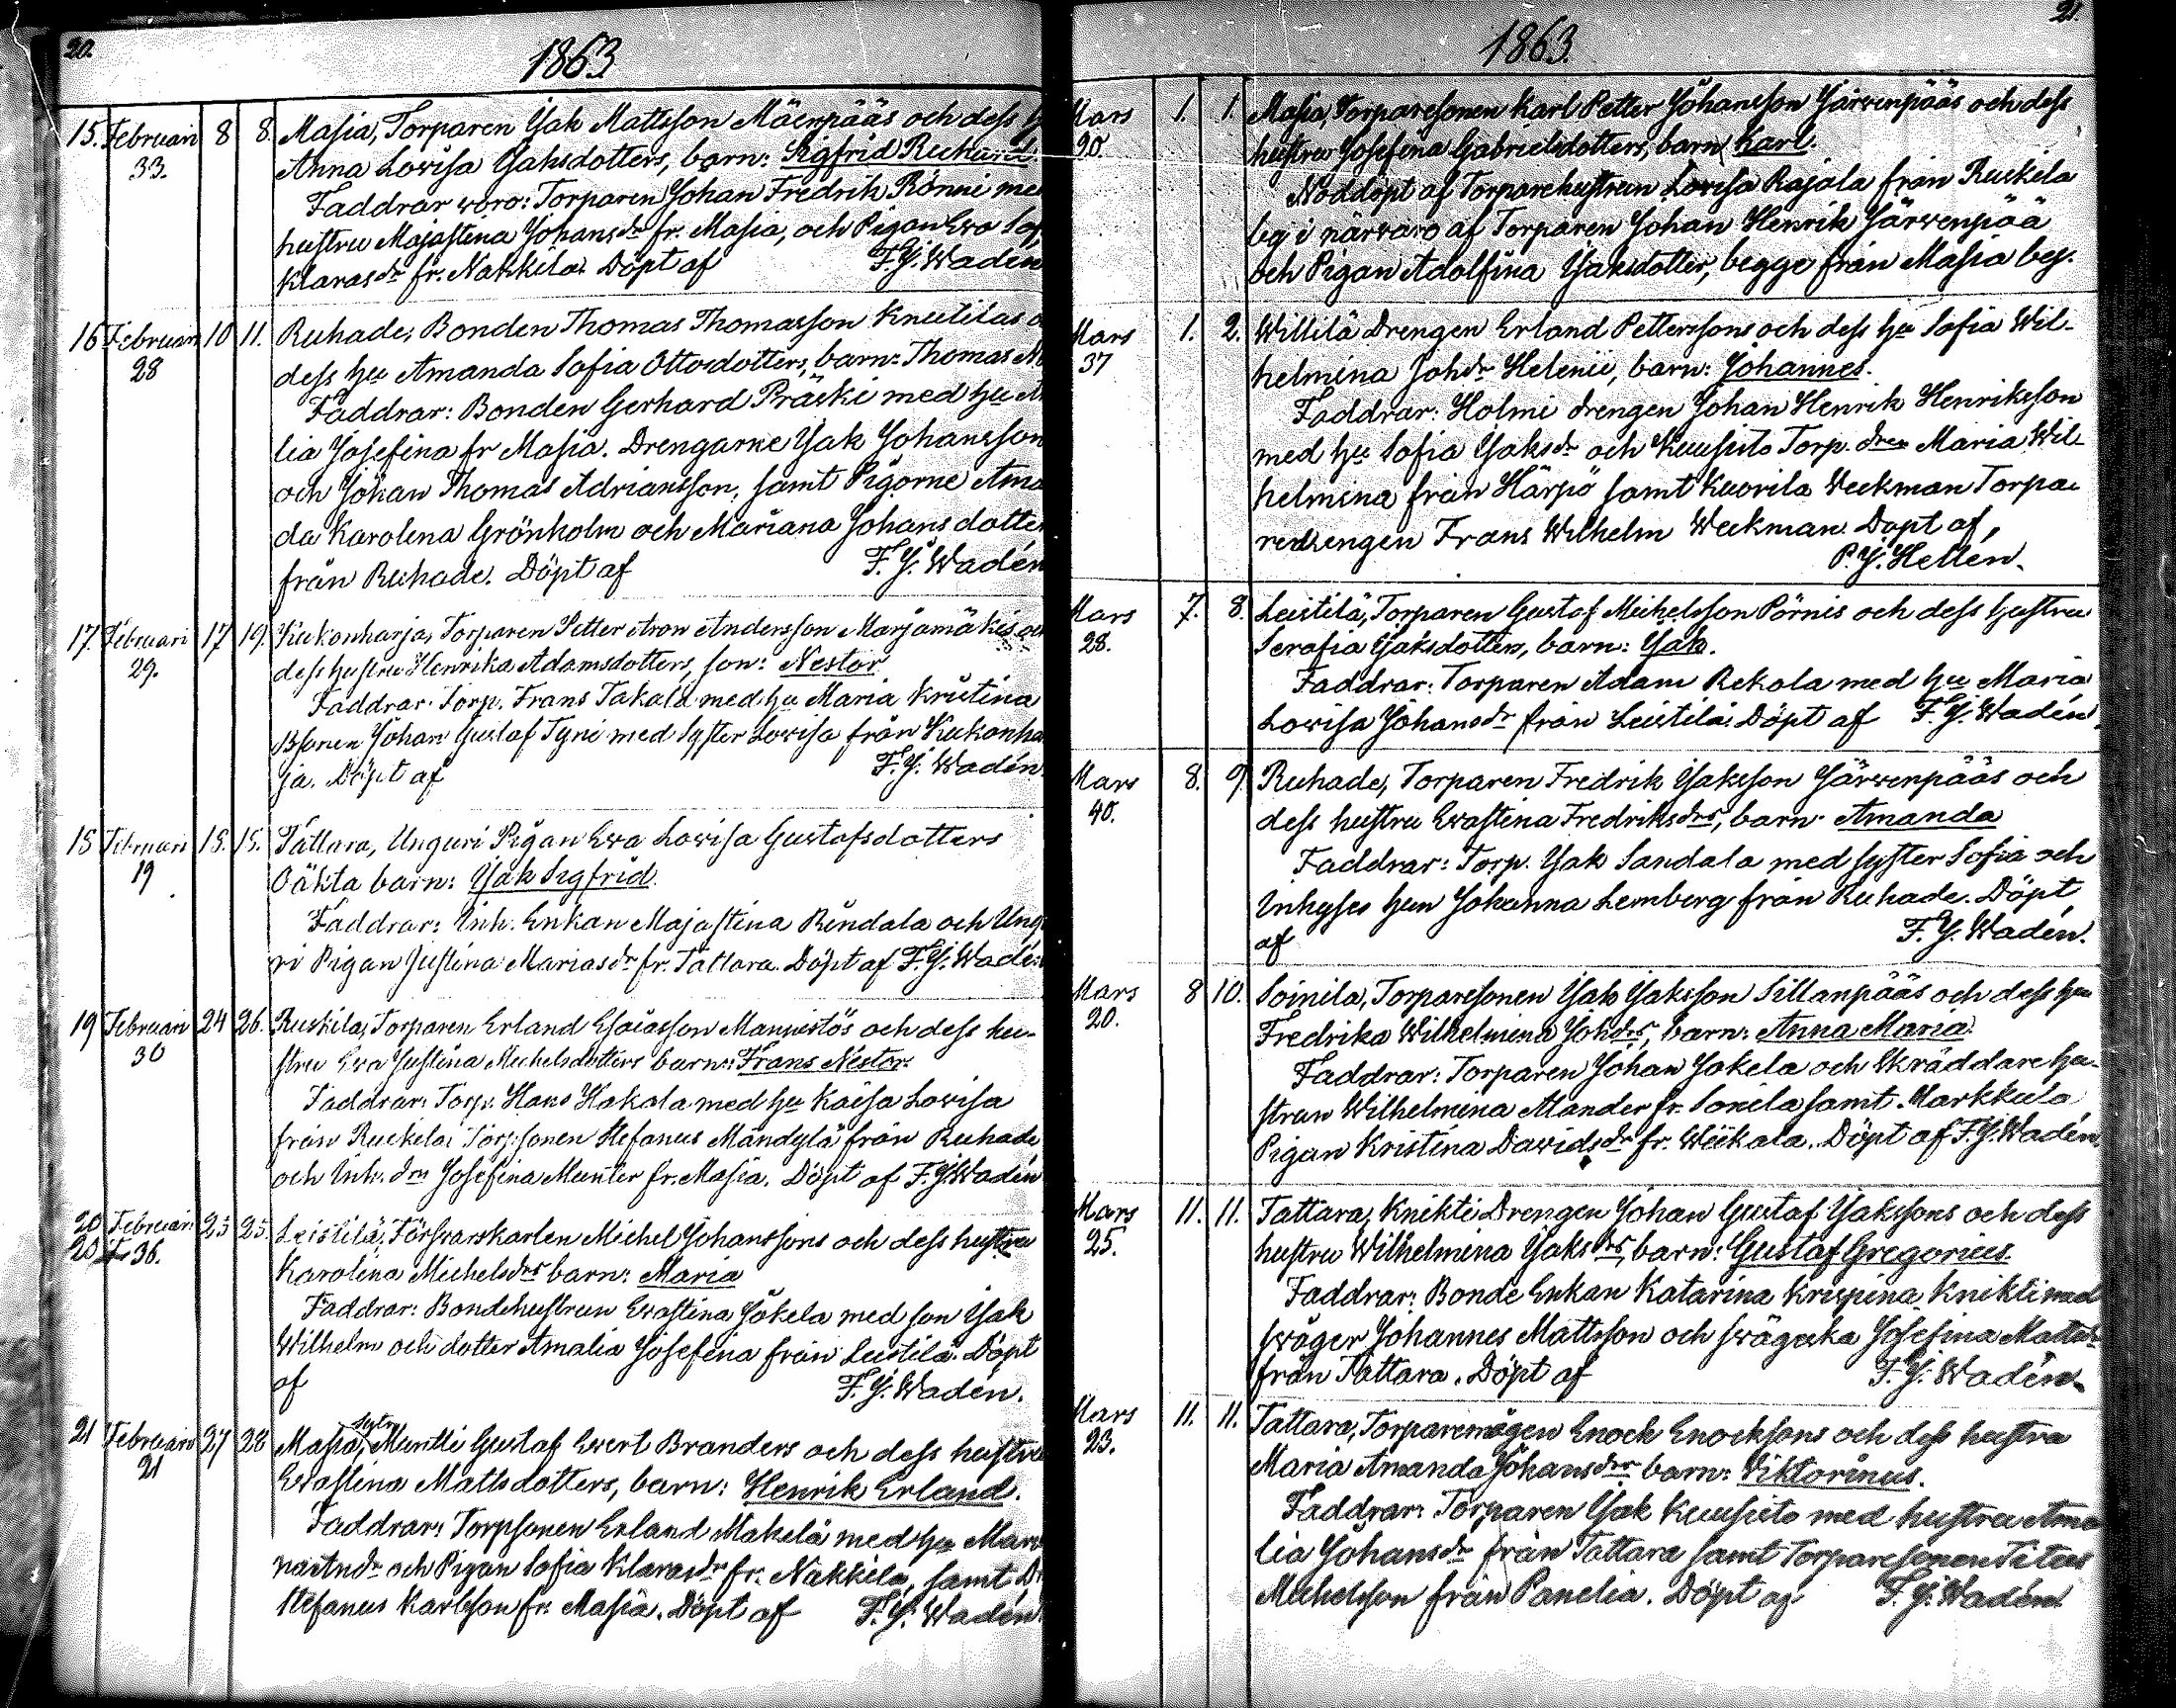 20.
1863
15. Februari 8 8. Masia, Torparen Isak Mattsson Mäenpääs och dess
33. Anna Lovisa Isaksdotters, barn: Sigfrid Richard.
Faddrar voro: Torparen Johan Fredrik Rönni med
hustru Majastina Johansdr fr. Masia, och Pigan Eva
Klarasdr fr. Nakkila. Döpt af F. J. Wadén
16 Februari 10 11. Ruhade, Bonden Thomas Thomasson Knuutilas
28 dess hu Amanda Sofia Ottosdotters, barn: Thomas
Faddrar: Bonden Gerhard Präski med hu
lia Josefina fr Masia. Drengarne Isak Johansson
och Johan Thomas Adriansson, samt Pigorne Ama
da Karolina Grönholm och Mariana Johansdotter
från Ruhade. Döpt af F. J. Wadén
17. Februari 17 19. Kukonharja, Torparen Petter Aron Andersson Marjamäkis och
29. dess hustru Henrika Adamsdotters, son: Nestor
Faddrar: Torp. Frans Takala med hu Maria Kristina
Bsonen Johan Gustaf Tyni med syster Lovisa från Kukonha
ja. Döpt af F. J. Wadén
18 Februari 15. 15. Tattara, Unguri Pigan Eva Lovisa Gustafsdotters
19 Oäkta barn: Isak Sigfrid.
Faddrar: Inh. Enkan Majastina Rindala och Ung
ri Pigan Justina Mariasdr fr. Tattara. Döpt af F. J. Wadén
19 Februari 24 26. Ruskila, Torparen Erland Esaiasson Mannistös och dess hu-
30 stru Eva Justina Michelsdotters barn: Frans Nestor.
Faddrar: Torp. Hans Hakala med hu Kaisa Lovisa
från Ruskila, Torpsonen Stefanus Mändylä från Ruhade
och Inh. drn Josefina Munter fr. Masia. Döpt af F. J. Wadén
20 Februari 25 25. Leistilä, Försvarskarlen Michel Johanssons och dess hustru
20 36. Karolina Michelsdrs barn: Maria
Faddrar: Bondehustrun Evastina Jökela med son Isak
Wilhelm och dotter Amalia Josefina från Leistilä. Döpt
af F. J. Wadén.
21 Februari 27 28 Masia, Muntti Gustaf Evert Branders och dess hustru
21 Evastina Mattsdotters, barn: Henrik Erland.
Faddrar: Torpsonen Erland Makelä med hu Mari
och Pigan Sofia Klarasdr fr. Nakkila, samt
Stefanus Karlsson fr. Masia. Döpt af F. J. Wadén
21.
1863.
Mars 1. 1. Masia, Torparesonen Karl Petter Johansson Järvenpääs och dess
20 hustru Josefina Gabrielsdotters, barn Karl.
Nöddöpt af Torparehustrun Lovisa Rajala från Ruskila
by i närvaro af Torparen Johan Henrik Järvenpää
och Pigan Adolfina Isaksdotter, begge från Masia by.
Mars 1. 2. Willilä Drengen Erland Petterssons och dess hu Sofia Wil-
37 helmina Johdr Helenii, barn: Johannes.
Faddrar: Holmi drengen Johan Henrik Henriksson
med hu Sofia Isaksdr och Kuusisto Torp. drn Maria Wil-
helmina från Härpö samt Kuorila Weckman Torpa-
redrengen Frans Wilhelm Weckman. Döpt af,
P. J. Hellén.
Mars 7. 8. Leistilä, Torparen Gustaf Michelsson Pörnis och dess hustru
28. Serafia Isaksdotters, barn: Isak.
Faddrar: Torparen Adam Rekola med hu Maria
Lovisa Johansdr från Leistilä. Döpt af F. J. Wadén.
Mars 8. 9. Ruhade, Torparen Fredrik Isaksson Järvenpääs och
40. dess hustru Evastina Fredriksdrs, barn: Amanda
Faddrar: Torp. Isak Sandala med syster Sofia och
Inhyses hun Johanna Lemberg från Ruhade. Döpt
af F. J. Wadén.
Mars 8 10. Soinila, Torparesonen Isak Isaksson Sillanpääs och dess hu
20. Fredrika Wilhelmina Johdrs, barn: Anna Maria.
Faddrar: Torparen Johan Jokela och Skräddare hu-
strun Wilhelmina Mander fr. Soinila samt Markkula
Pigan Kristina Davidsdr fr. Wiikala. Döpt af F. J. Wadén.
Mars 11. 11. Tattara, Knikti Drengen Johan Gustaf Isakssons och dess
25. hustru Wilhelmina Isaksdrs, barn: Gustaf Gregorius.
Faddrar: Bonde Enkan Katarina Krispina Knikti med
svåger Johannes Mattsson och svägerska Josefina Mattsdr
från Tattara. Döpt af F. J. Wadén.
Mars 11. 11. Tattara, Torparemågen Enock Enocksons och dess hustru
23. Maria Amanda Johansdrs barn: Viktorinus.
Faddrar: Torparen Isak Kuusisto med hustru Ama
lia Johansdr från Tattara samt Torparesonen Titus
Michelsson från Panelia. Döpt af F. J. Wadén